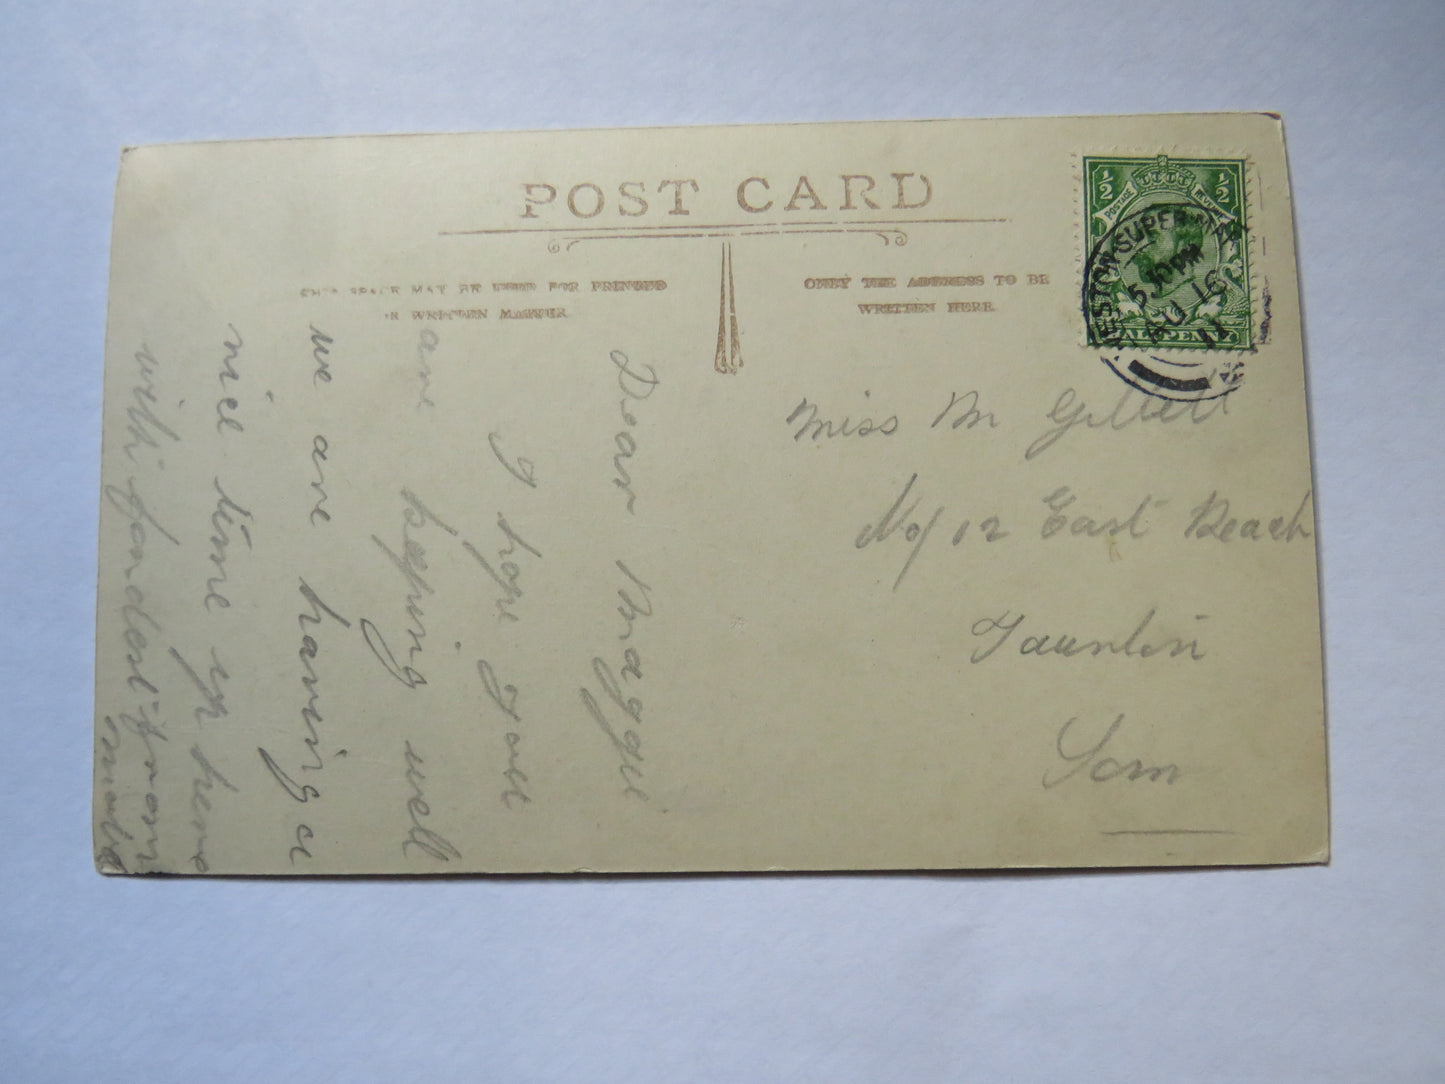 POST CARD
THIS SPACE MAY BE USED FOR PRINTED
OR WRITTEN MATTER
ONLY THE ADDRESS TO BE
WRITTEN HERE
½ ½
POSTAGE REVENUE
HALFPENNY
WESTON-SUPER-MARE
5.10 PM
AU 16
11
Miss M Gillett
No/12 East Reach
Taunton
Som
Dear Maggie
I hope you
are keeping well
we are having a
nice time up here
with fondest from